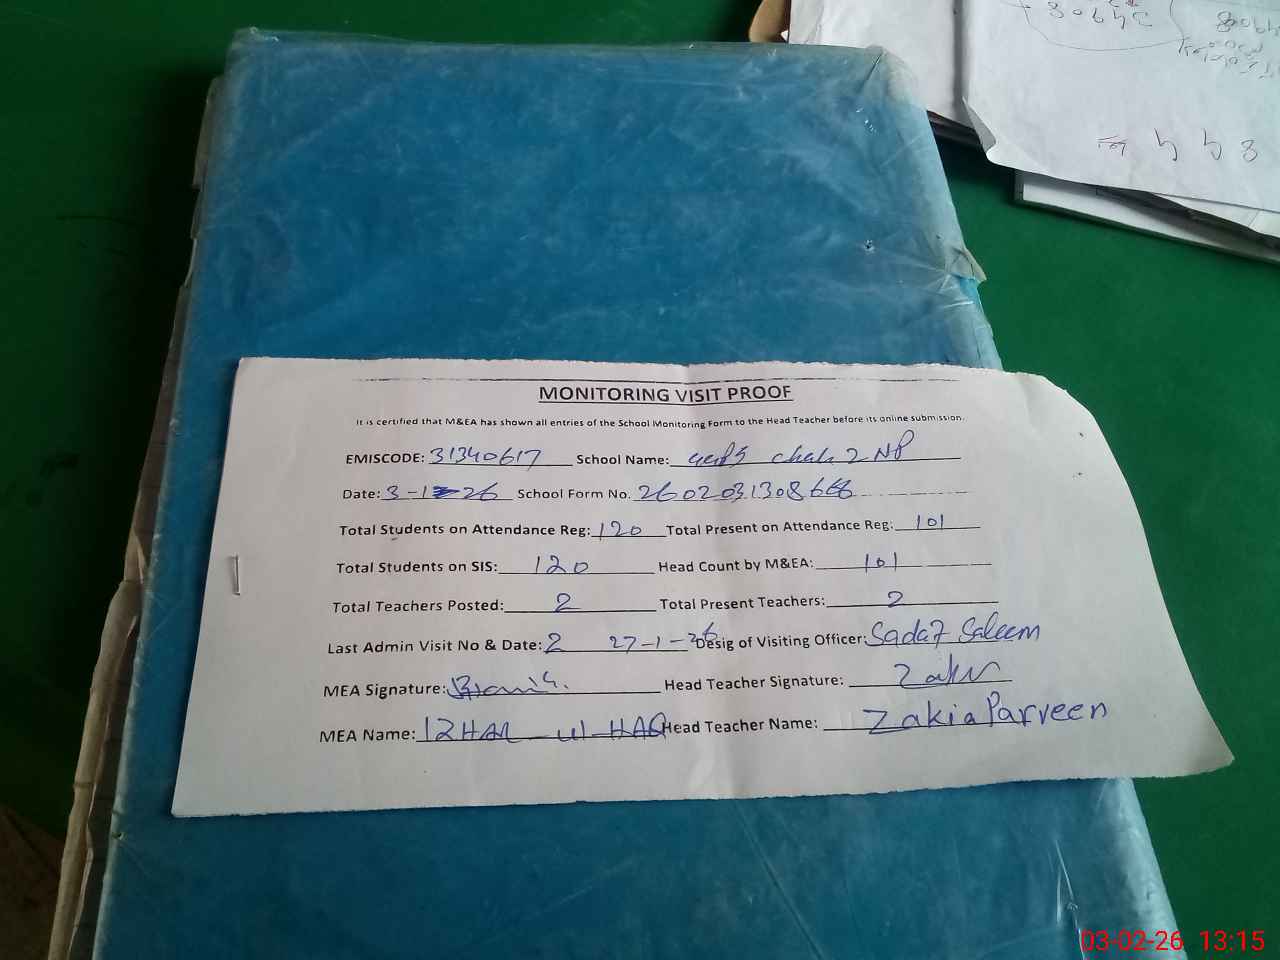 MONITORING VISIT PROOF
It is certified that M&EA has shown all entries of the School Monitoring Form to the Head Teacher before its online submission.
EMISCODE: 31340617 School Name: chak 2 NP
Date: 3-1-26 School Form No. 2602031308668
Total Students on Attendance Reg: 120 Total Present on Attendance Reg: 101
Total Students on SIS: 120 Head Count by M&EA: 101
Total Teachers Posted: 2 Total Present Teachers: 2
Last Admin Visit No & Date: 2 27-1-26 Desig of Visiting Officer: Sadaf Saleem
MEA Signature: Head Teacher Signature:
MEA Name: IZHAR-ul-HAQ Head Teacher Name: Zakia Parveen
03-02-26 13:15